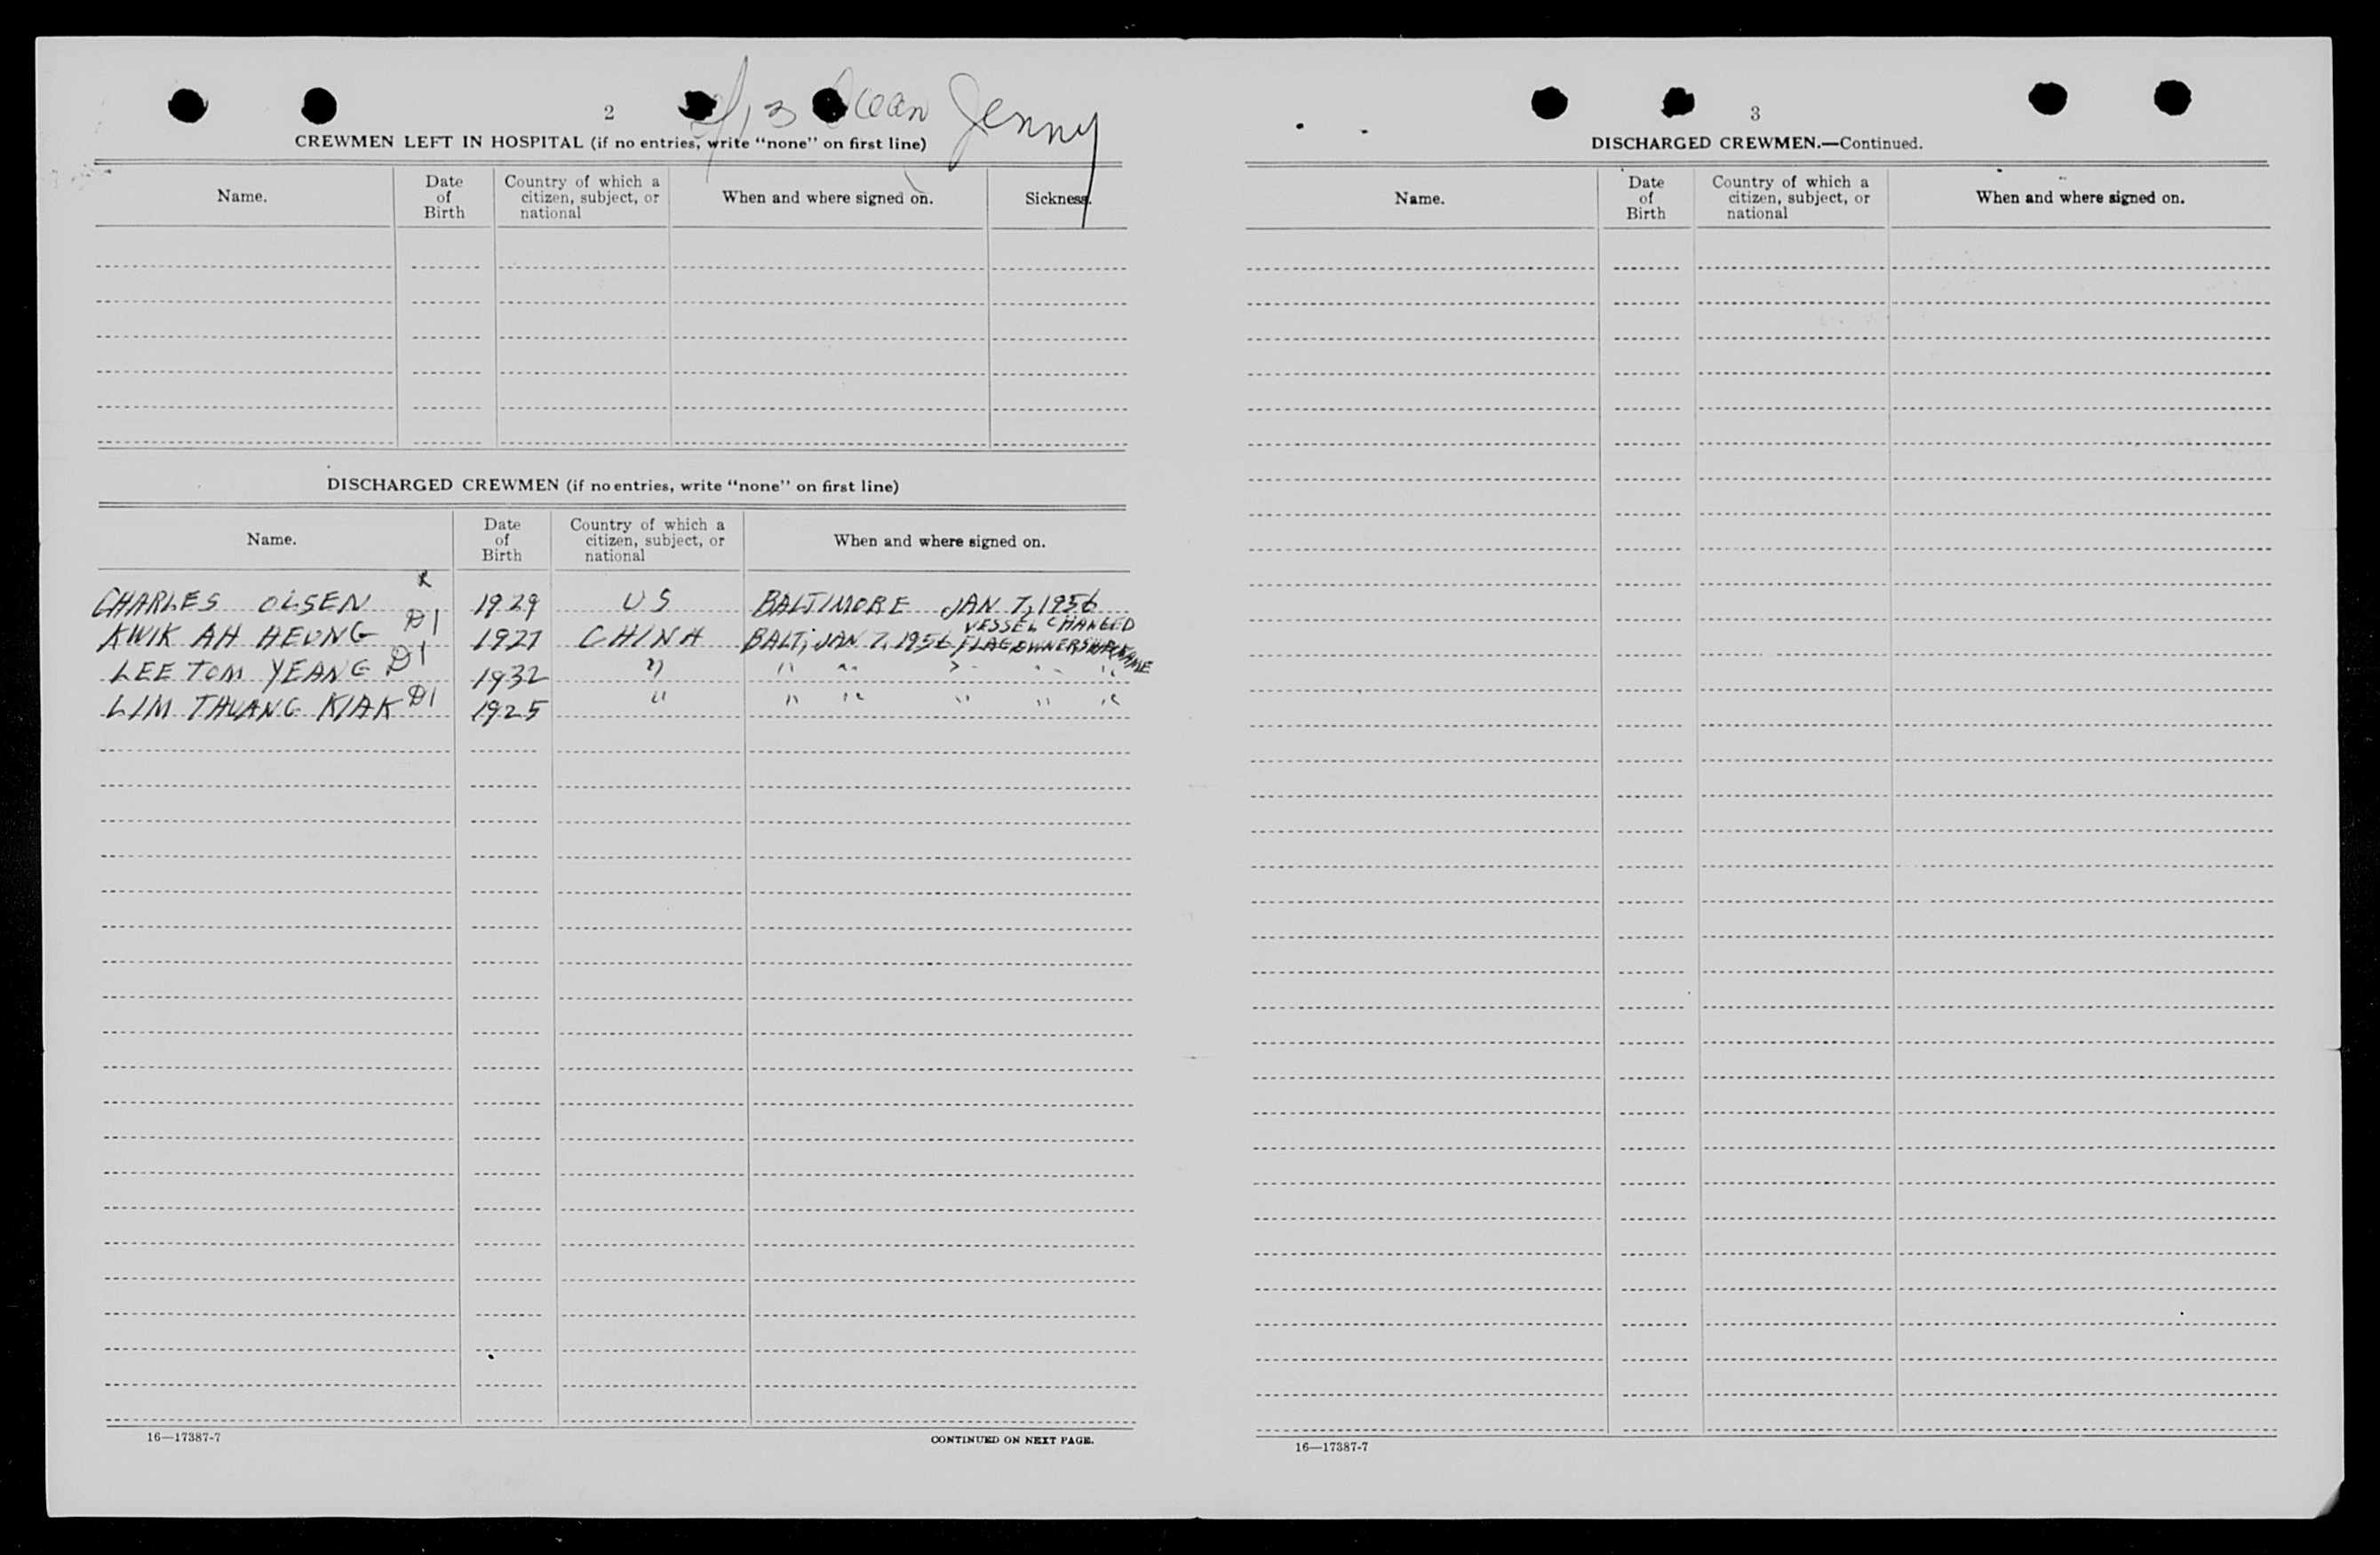 2
2/13 Ocean Jenny
CREWMEN LEFT IN HOSPITAL (if no entries, write "none" on first line)
Name.
Date of Birth
Country of which a citizen, subject, or national
When and where signed on.
Sickness.
DISCHARGED CREWMEN (if no entries, write "none" on first line)
Name.
Date of Birth
Country of which a citizen, subject, or national
When and where signed on.
CHARLES OLSEN x 1929 US BALTIMORE JAN 7, 1956
VESSEL CHANGED
KWIK AH HEUNG D1 1927 CHINA BALT, JAN 7, 1956 FLAG OWNERSHIP & NAME
LEE TOM YEANG D1 1932 " " " " " "
LIM THUANG KIAK D1 1925 " " " " " "
16—17387-7
CONTINUED ON NEXT PAGE.
3
DISCHARGED CREWMEN.—Continued.
Name.
Date of Birth
Country of which a citizen, subject, or national
When and where signed on.
16—17387-7